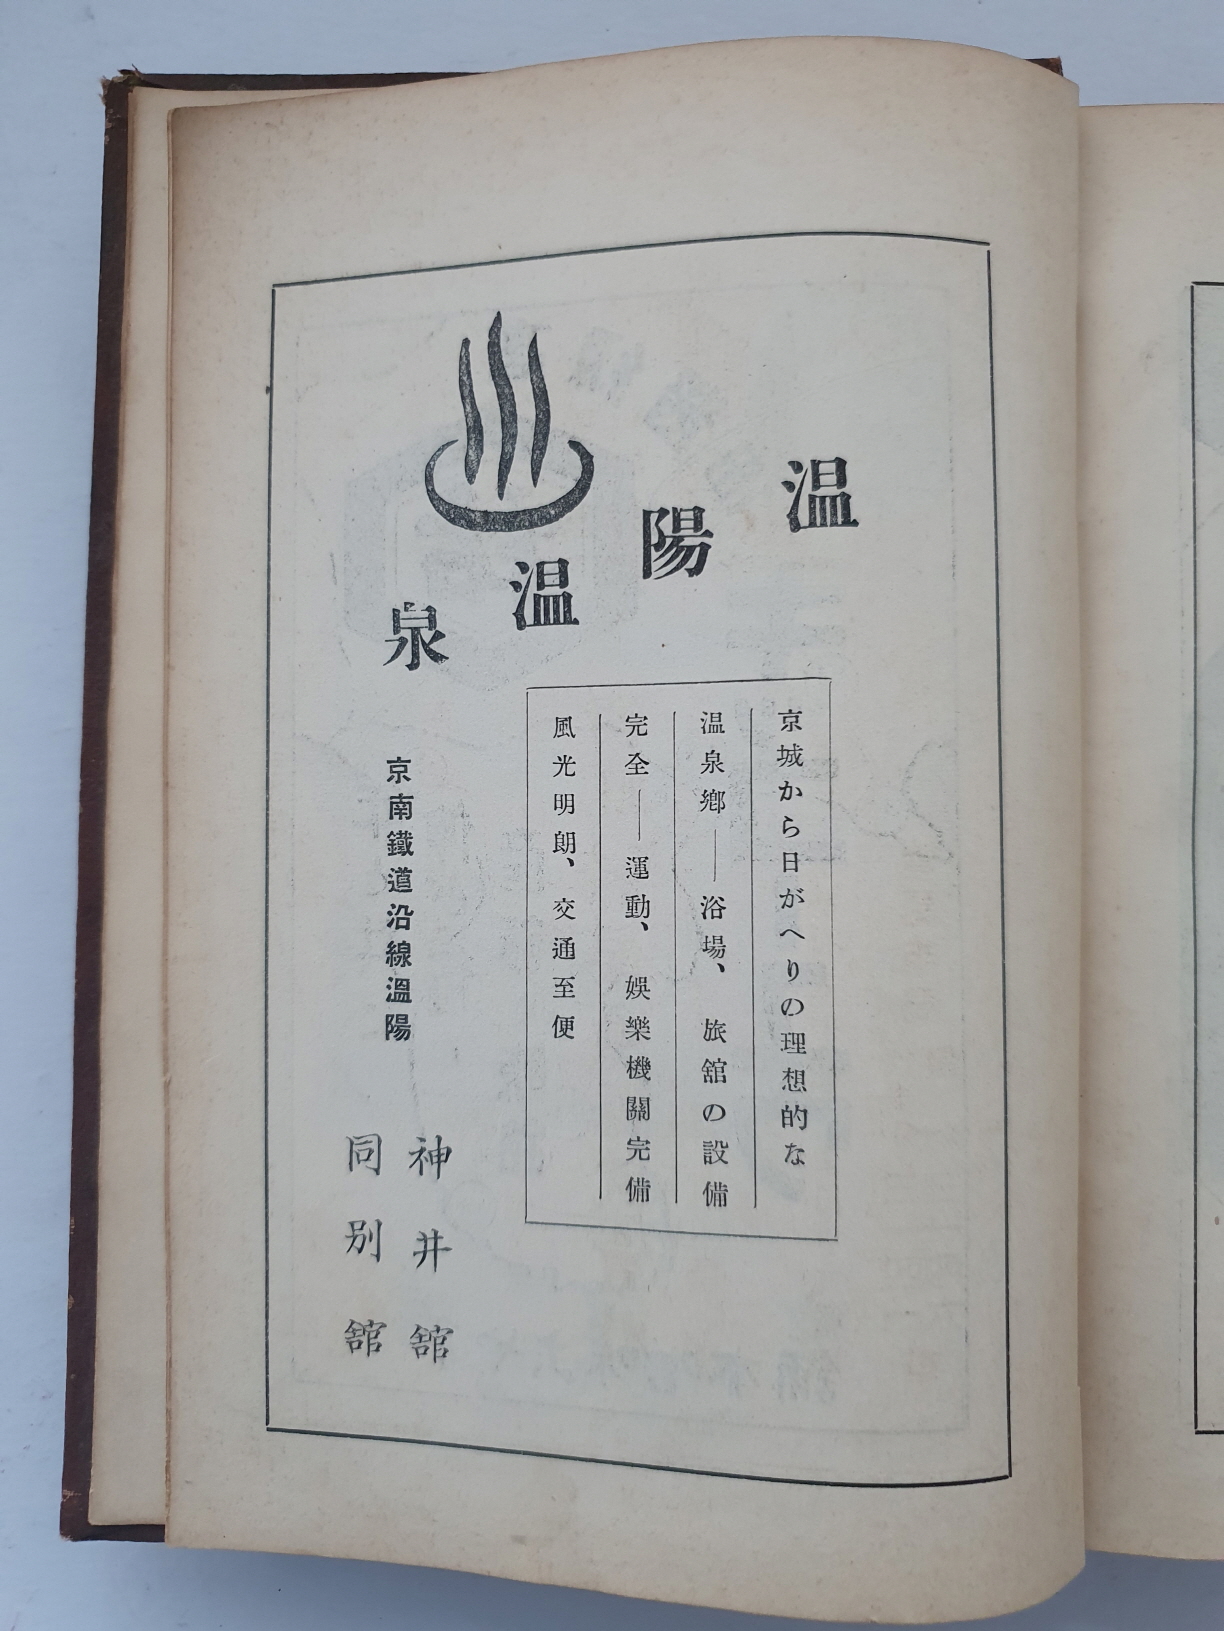 温陽温泉
京城から日がへりの理想的な
温泉鄕――浴場、旅舘の設備
完全――運動、娯樂機關完備
風光明朗、交通至便
京南鐵道沿線溫陽
神井舘
同別舘